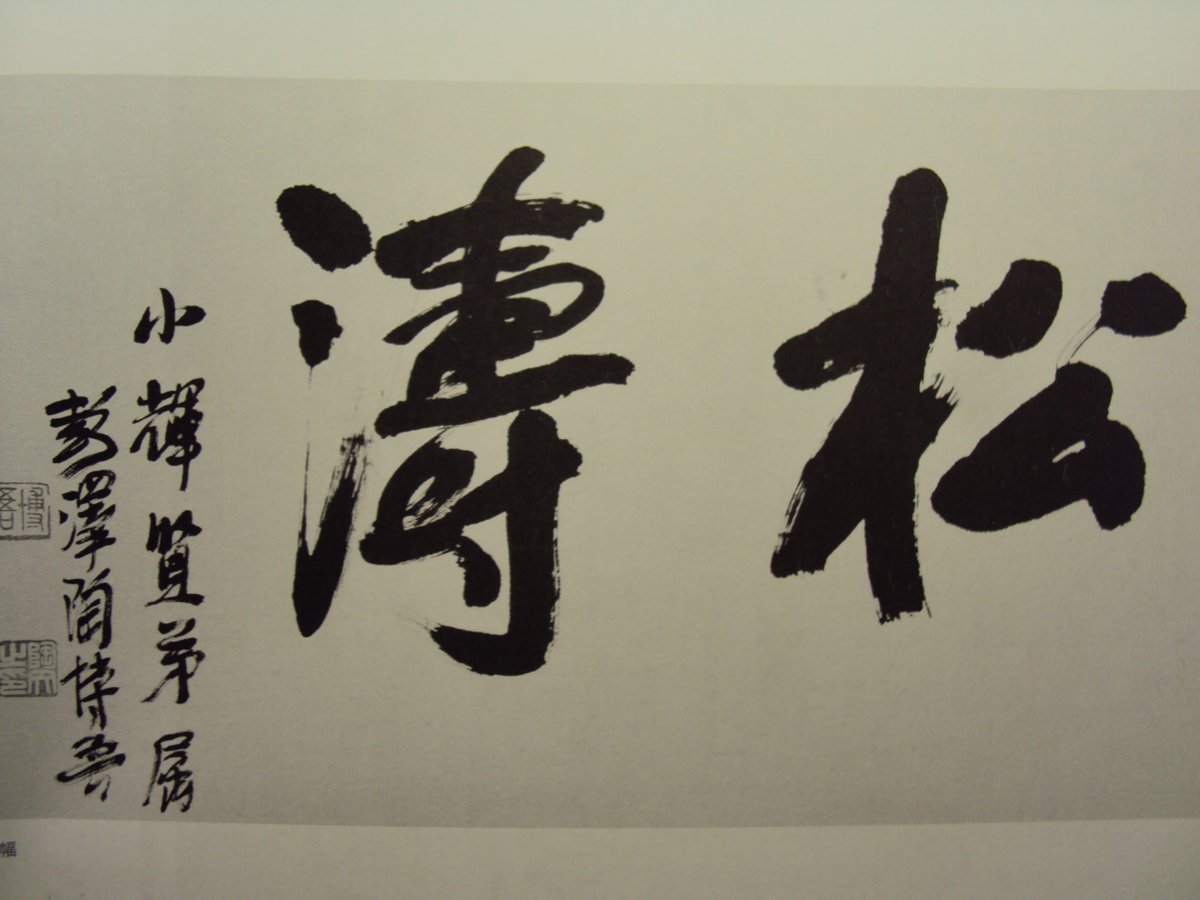 松濤
小輝賢弟属
彭澤陶博吾
博吾
幅